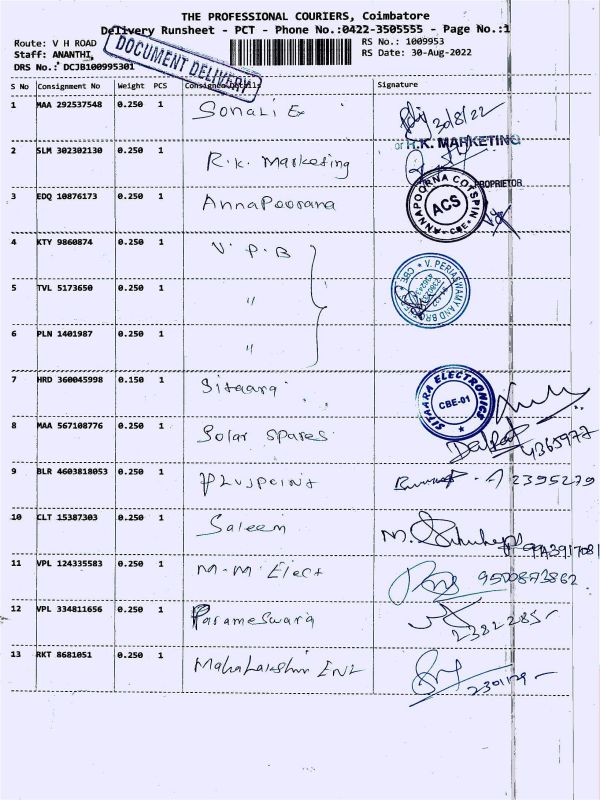 THE PROFESSIONAL COURIERS, Coimbatore
Delivery Runsheet - PCT - Phone No.:0422-3505555 - Page No.:1
Route: V H ROAD
RS No.: 1009953
Staff: ANANTHI,
RS Date: 30-Aug-2022
DRS No.: DCJB100995301
DOCUMENT DELIVERY
S No Consignment No Weight PCS Consignee Details Signature
1 MAA 292537548 0.250 1 Sonali Ex 30/8/22
or R.K. MARKETING
2 SLM 302302130 0.250 1 R.K. Marketing
PROPRIETOR
3 EDQ 10876173 0.250 1 Annapoorana
ANNAPOORNA COTSPIN ACS CBE
4 KTY 9860874 0.250 1 V.P.B
V. PERIASWAMY AND BROTHERS CBE
5 TVL 5173650 0.250 1 "
6 PLN 1401987 0.250 1 "
7 HRD 360045998 0.150 1 Sitaara
SITAARA ELECTRONICS CBE-01
8 MAA 567108776 0.250 1 Solar Spares 4365977
9 BLR 4603818053 0.250 1 Pluspoint 2395279
10 CLT 15387303 0.250 1 Saleem
11 VPL 124335583 0.250 1 M.M. Elect 9500873862
12 VPL 334811656 0.250 1 Parameswara 2382285
13 RKT 8681051 0.250 1 Mahalakshmi Ent